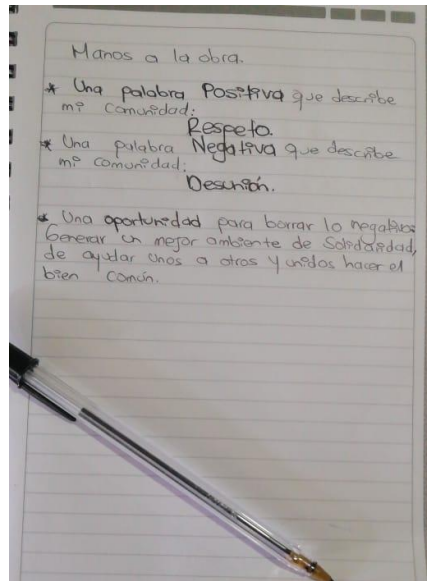 Manos a la obra.
* Una palabra Positiva que describe
mi comunidad:
Respeto.
* Una palabra Negativa que describe
mi comunidad:
Desunión.
* Una oportunidad para borrar lo negativo:
Generar un mejor ambiente de Solidaridad,
de ayudar unos a otros y unidos hacer el
bien común.